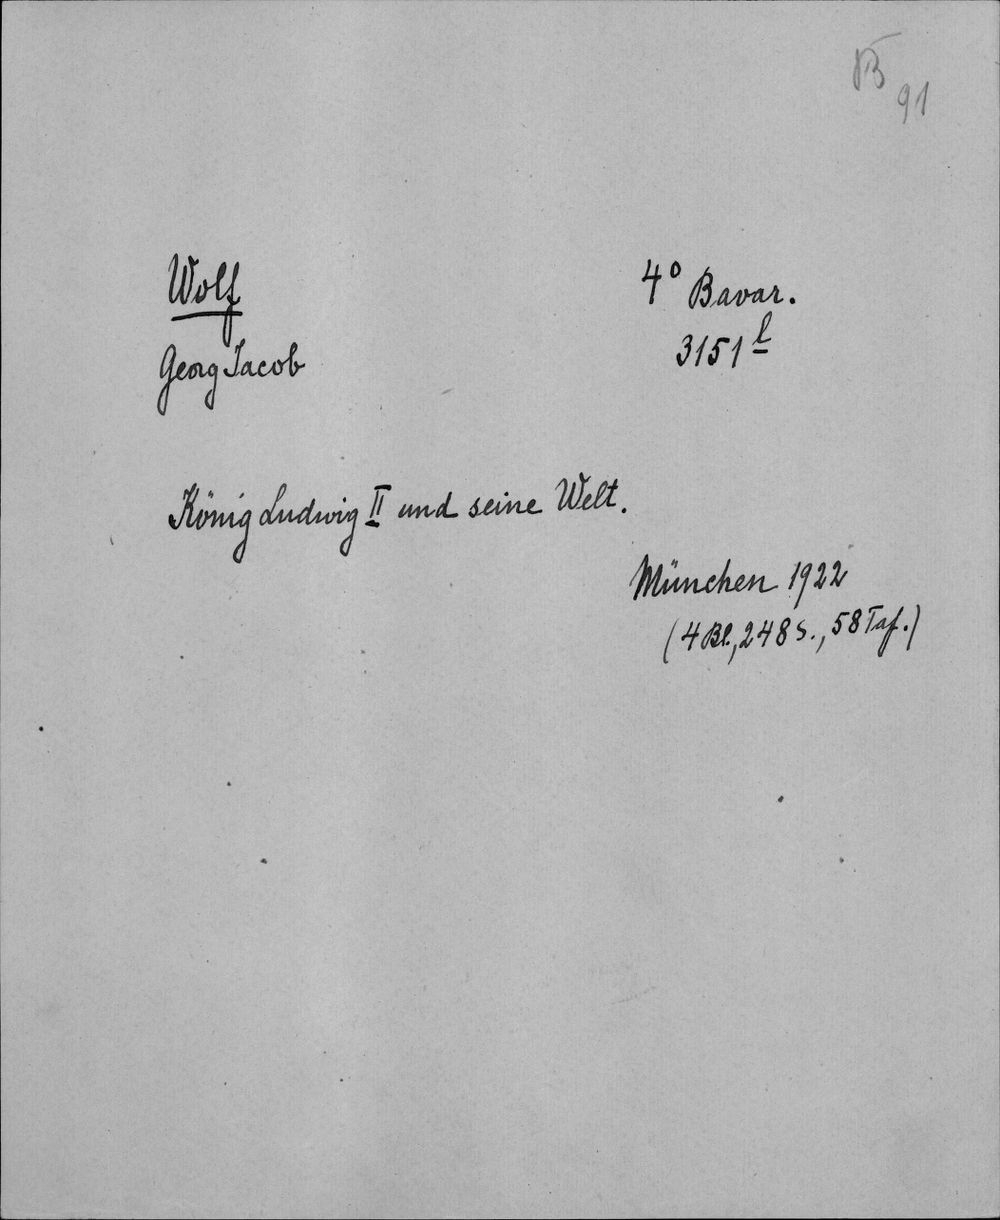 91
Wolf
4° Bavar.
Georg Jacob
3151 l
König Ludwig II und seine Welt.
München 1922
(4 Bl., 248 S., 58 Taf.)